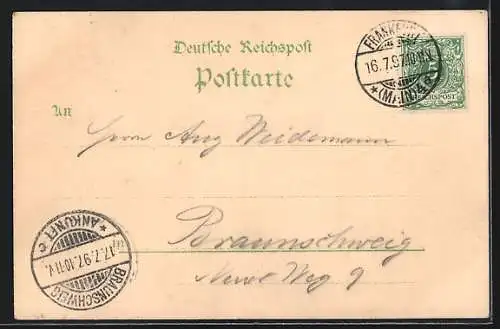 Deutsche Reichspost
Postkarte
FRANKFURT
16.7.97.10-11V.
* (MAIN) 4 a
REICHSPOST
An
Herrn Aug Weidemann
Braunschweig
Neue Weg 9
* ANKUNFT c
17.7.97.10-11V.
BRAUNSCHWEIG